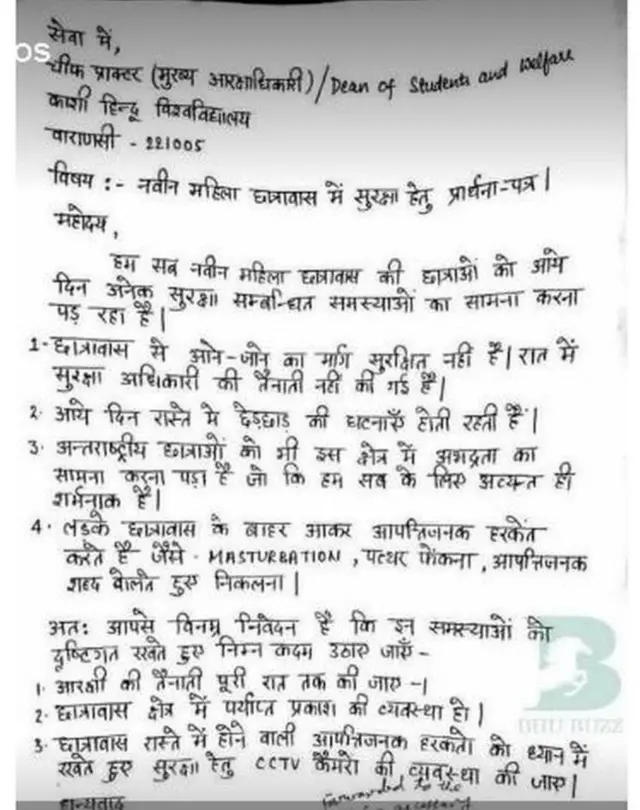 OS
सेवा में,
चीफ प्राक्टर (मुख्य आरक्षाधिकारी)/Dean of Students and Welfare
काशी हिन्दू विश्वविद्यालय
वाराणसी - 221005
विषय :- नवीन महिला छात्रावास में सुरक्षा हेतु प्रार्थना-पत्र |
महोदय,
हम सब नवीन महिला छात्रावास की छात्राओं को आये
दिन अनेक सुरक्षा सम्बन्धित समस्याओं का सामना करना
पड़ रहा है |
1- छात्रावास मे आने-जाने का मार्ग सुरक्षित नही है | रात में
सुरक्षा अधिकारी की तैनाती नही की गई है |
2. आये दिन रास्ते मे छेड़छाड़ की घटनाएँ होती रहती हैं |
3. अन्तराष्ट्रीय छात्राओं को भी इस क्षेत्र में अभद्रता का
सामना करना पड़ा है जो कि हम सब के लिए अत्यन्त ही
शर्मनाक है |
4. लड़के छात्रावास के बाहर आकर आपत्तिजनक हरकतें
करते है जैसे - MASTURBATION , पत्थर फेंकना , आपत्तिजनक
शब्द बोलते हुए निकलना |
अतः आपसे विनम्र निवेदन है कि इन समस्याओं को
दृष्टिगत रखते हुए निम्न कदम उठाए जाएँ -
1. आरक्षी की तैनाती पूरी रात तक की जाए - |
2. छात्रावास क्षेत्र में पर्याप्त प्रकाश की व्यवस्था हो |
3. छात्रावास रास्ते में होने वाली आपत्तिजनक हरकतो को ध्यान में
रखते हुए सुरक्षा हेतु CCTV कैमरो की व्यवस्था की जाए |
धन्यवाद
forwarded to the
B
BHU BUZZ